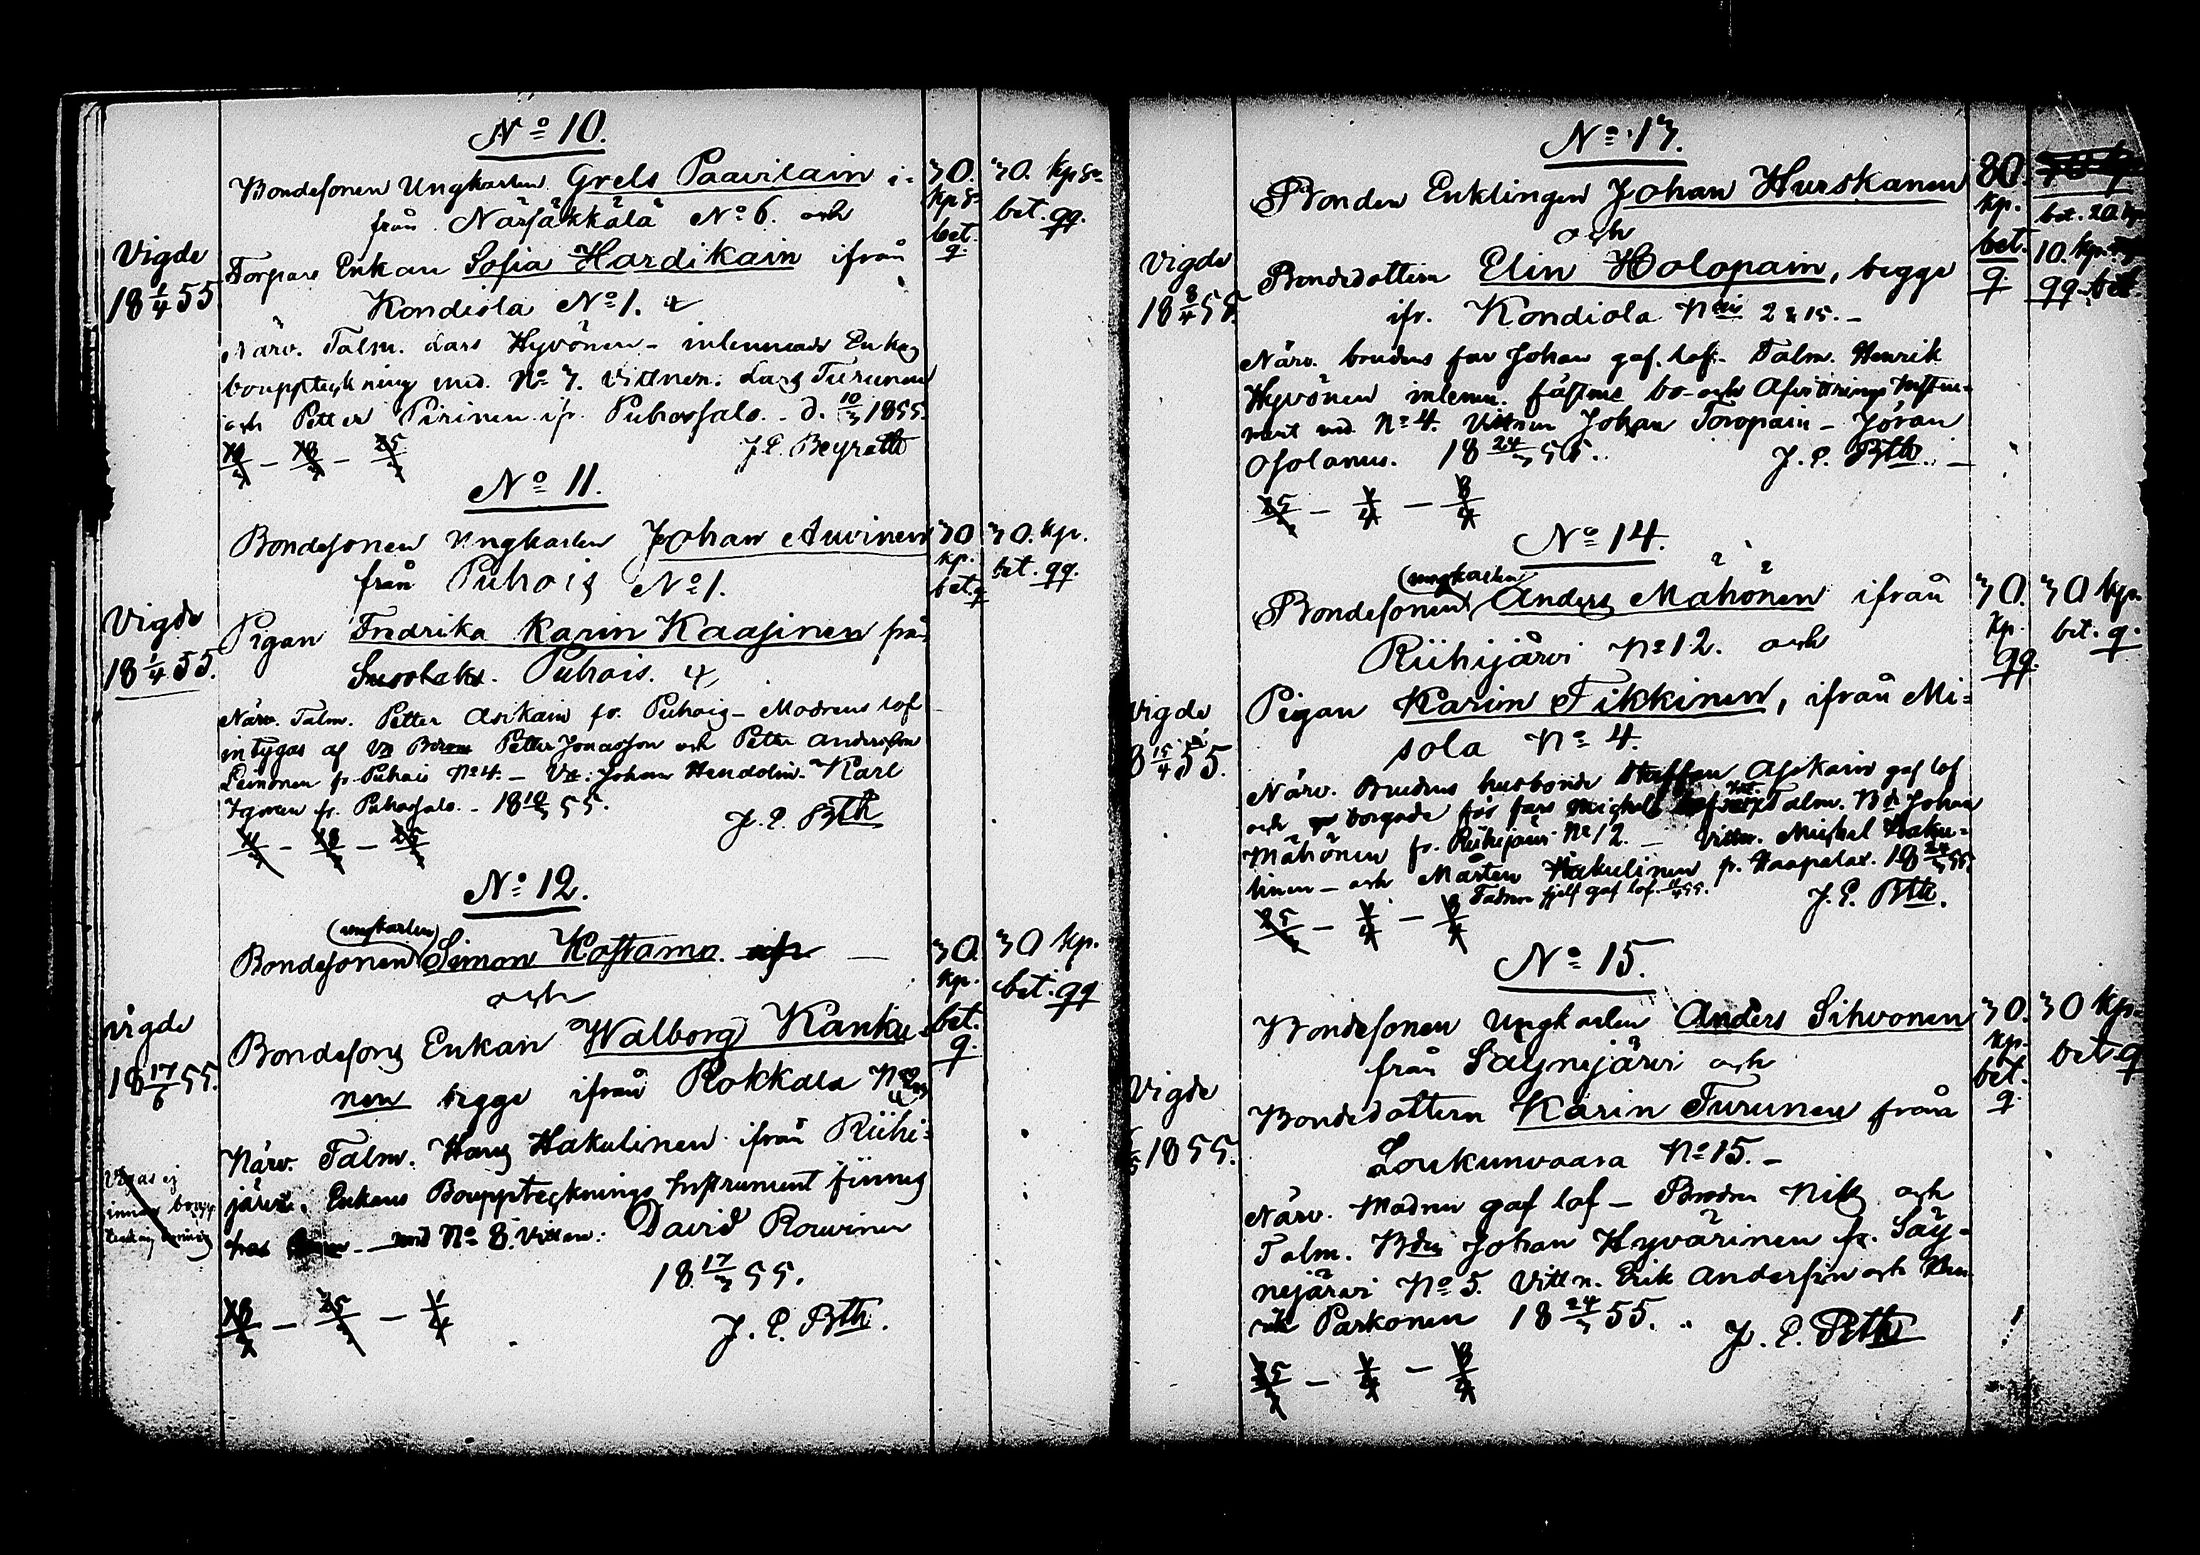 No 10.
Bondesonen Ungkarlen Grels Paavilain i-
från Närsäkkälä No 6. och
Torpare Enkan Sofia Hardikain ifrån
Kondiola No 1.
Närv. Talm. Lars Hyvönen - inlemnade Enkas
bouppteckning med. No 7. Vittnen: Lars Turunen
och Petter Pirinen ifr. Puhossalo. d. 10/3 1855.
J. E. Beyrath
Vigde
18 1/4 55
30. kp Sr bet. q.
30. kp Sr bet. qq.
No 11.
Bondesonen Ungkarlen Johan Auvinen
från Puhois No 1.
Pigan Fredrika Karin Kaasinen från
Puhois.
Närv. Talm. Petter Asikain fr. Puhois - Modrens lof
intygas af Petter Jonasson och Petter Andersson
Leinonen fr. Puhois No 4. - Vit: Johan Hendolin. Karl
fr. Puhossalo. - 18 10/3 55.
J. E. Bth
Vigde
18 1/4 55.
30 kp. bet. q
30. kp. bet. qq.
No 12.
(ungkarlen)
Bondesonen Simon Kostamo.
och
Bondesons Enkan Walborg Kanku-
nen begge ifrån Rokkala
Närv. Talm. Hans Hakulinen ifrån Riihi-
järvi. Enkans Boupptecknings Instrument finnes
med No 8. Vittne: David Rouvinen
18 17/3 55.
J. E. Bth.
vigde
18 17/6 55.
30. kp. bet. q.
30 kp. bet. qq
No 13.
Bonden Enklingen Johan Hurskanen
och
Bondedottern Elin Holopain, begge
ifr. Kondiola Nris 2 & 15. -
Närv. brudens far Johan gaf lof - Talm. Henrik
Hyvönen inlemn. fästme bo- och Afvittrings Instru-
ment med No 4. Vittnen Johan Toropain - Jöran
Osolanus. 18 24/3 55.
J. E. Bth.
Vigde
18 8/4 55.
80. kp. bet. q
bet. 20 kp
10. kp.
qq bet.
No 14.
(ungkarlen)
Bondesonen Anders Mähönen ifrån
Riihijärvi No 12. och
Pigan Karin Tikkinen, ifrån Mi-
sola No 4.
Närv. Brudens husbonde Staffan Asikain gaf lof
och borgade för fars Talm. Johan
Mähönen fr. Riihijärvi No 12. - Vittn. Michel Haku-
linen - och Mårten Hakulinen fr. Haapalax. 18 24/3 55
Fadren sjelf gaf lof.
J. E. Bth.
Vigde
8 15/4 55.
30. kp. qq.
30 kp. bet. q.
No 15.
Bondesonen Ungkarlen Anders Sihvonen
från Säynejärvi och
Bondedottern Karin Turunen från
Loukunvaara No 15. -
Närv. Modren gaf lof - Brodren Nils och
Talm. Johan Hyvärinen fr. Säy-
nejärvi No 5. Vittn. Erik Andersin och Hen-
rik Parkonen 18 24/3 55.
J. E. Bth
Vigde
1855.
30. kp. bet. q.
30 kp. bet. q